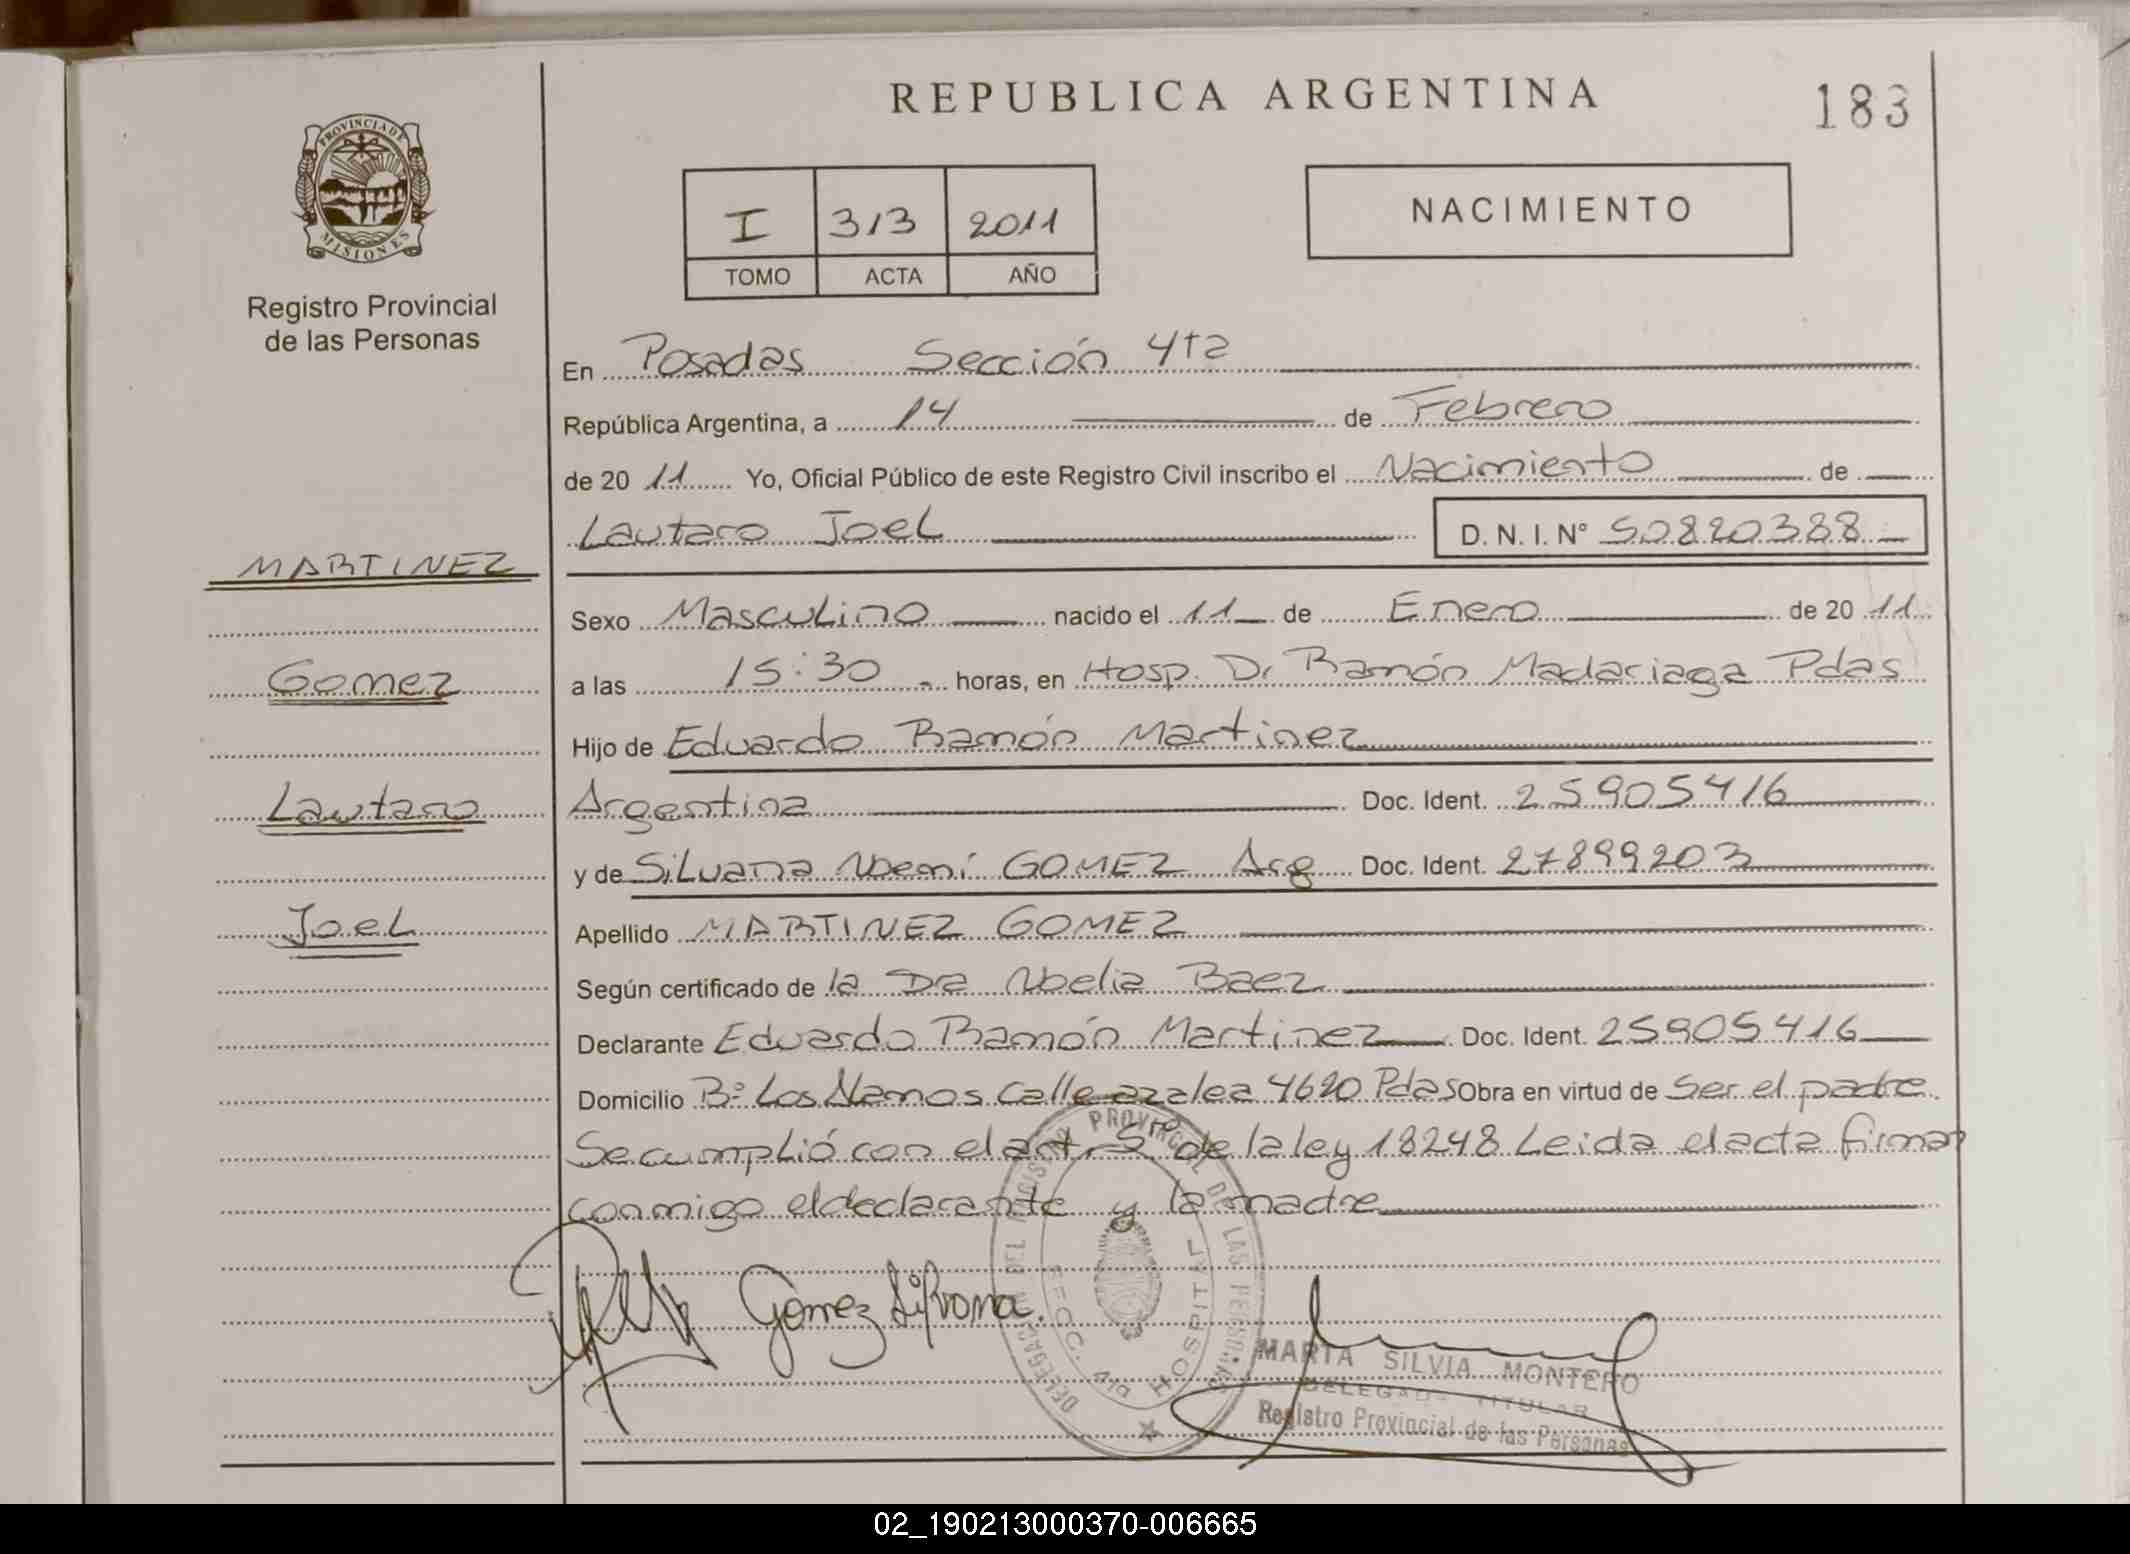 REPUBLICA ARGENTINA
183
PROVINCIA DE
MISIONES
Registro Provincial
de las Personas
I 313 2011
TOMO ACTA AÑO
NACIMIENTO
En Posadas Sección 4ta
República Argentina, a 14 de Febrero
de 20 11 Yo, Oficial Público de este Registro Civil inscribo el Nacimiento de
Lautaro Joel D. N. I. Nº 50820388
MARTINEZ
Gomez
Lautaro
Joel
Sexo Masculino nacido el 11 de Enero de 20 11
a las 15:30 horas, en Hosp. Dr Ramón Madariaga Pdas
Hijo de Eduardo Ramón Martinez
Argentina Doc. Ident. 25905416
y de Silvana Noemí GOMEZ Arg Doc. Ident. 27899203
Apellido MARTINEZ GOMEZ
Según certificado de la Dra Noelia Baez
Declarante Eduardo Ramón Martinez Doc. Ident. 25905416
Domicilio Bº Los Alamos Calle azalea 4620 Pdas Obra en virtud de Ser el padre
Se cumplió con el art 5º de la ley 18248 Leida el acta firman
conmigo el declarante y la madre
Gomez Silvana.
DELEGACION DEL REGISTRO PROVINCIAL DE LAS PERSONAS
SECC. 4ta HOSPITAL
MARTA SILVIA MONTERO
DELEGADA TITULAR
Registro Provincial de las Personas
02_190213000370-006665